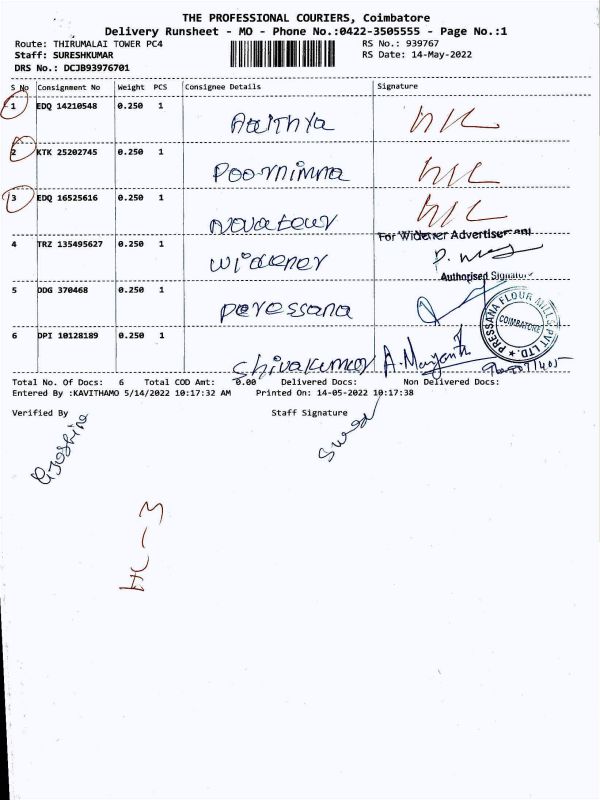 THE PROFESSIONAL COURIERS, Coimbatore
Delivery Runsheet - MO - Phone No.:0422-3505555 - Page No.:1
Route: THIRUMALAI TOWER PC4 RS No.: 939767
Staff: SURESHKUMAR RS Date: 14-May-2022
DRS No.: DCJB93976701
S No Consignment No Weight PCS Consignee Details Signature
1 EDQ 14210548 0.250 1
Adithya
2 KTK 25202745 0.250 1
Poornimna
3 EDQ 16525616 0.250 1
Novateur
For Widener Advertisement
4 TRZ 135495627 0.250 1
Widener
Authorised Signatory
5 DDG 370468 0.250 1
Peressana
PRESSANA FLOUR MILLS PVT LTD.
COIMBATORE
6 DPI 10128189 0.250 1
Shivakumar
Total No. Of Docs: 6 Total COD Amt: 0.00 Delivered Docs: Non Delivered Docs:
Entered By :KAVITHAMO 5/14/2022 10:17:32 AM Printed On: 14-05-2022 10:17:38
Verified By Staff Signature